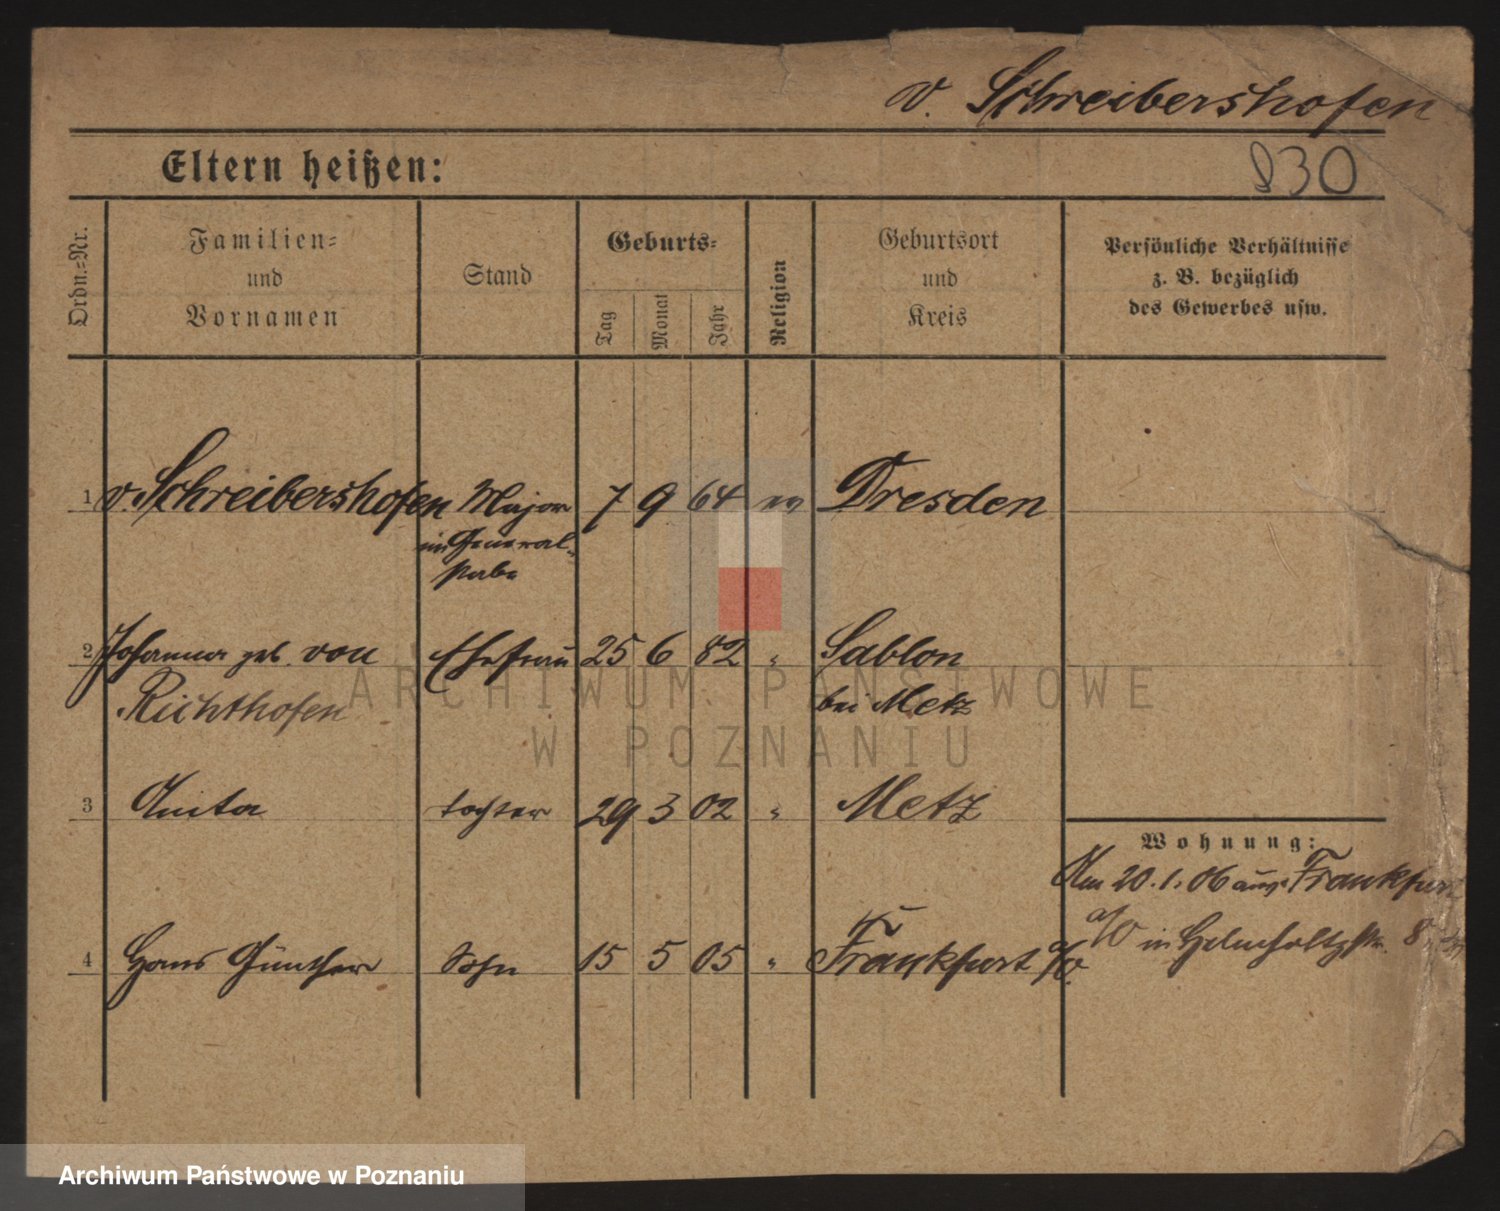 v. Schreibershofen
Eltern heißen:
830
Ordn.=Nr.
Familien=
und
Vornamen
Stand
Geburts=
Tag
Monat
Jahr
Religion
Geburtsort
und
Kreis
Persönliche Verhältnisse
z. B. bezüglich
des Gewerbes usw.
1 v. Schreibershofen Major 7 9 64 ev Dresden
im General-
stabe
2 Johanna geb. von Ehefrau 25 6 82 " Sablon
Richthofen bei Metz
3 Anita Tochter 29 3 02 " Metz
Wohnung:
Am 20.1.06 aus Frankfurt
a/O in Helmholtzstr. 8
4 Hans Günther Sohn 15 5 05 " Frankfurt a/O.
ARCHIWUM PAŃSTWOWE
W POZNANIU
Archiwum Państwowe w Poznaniu